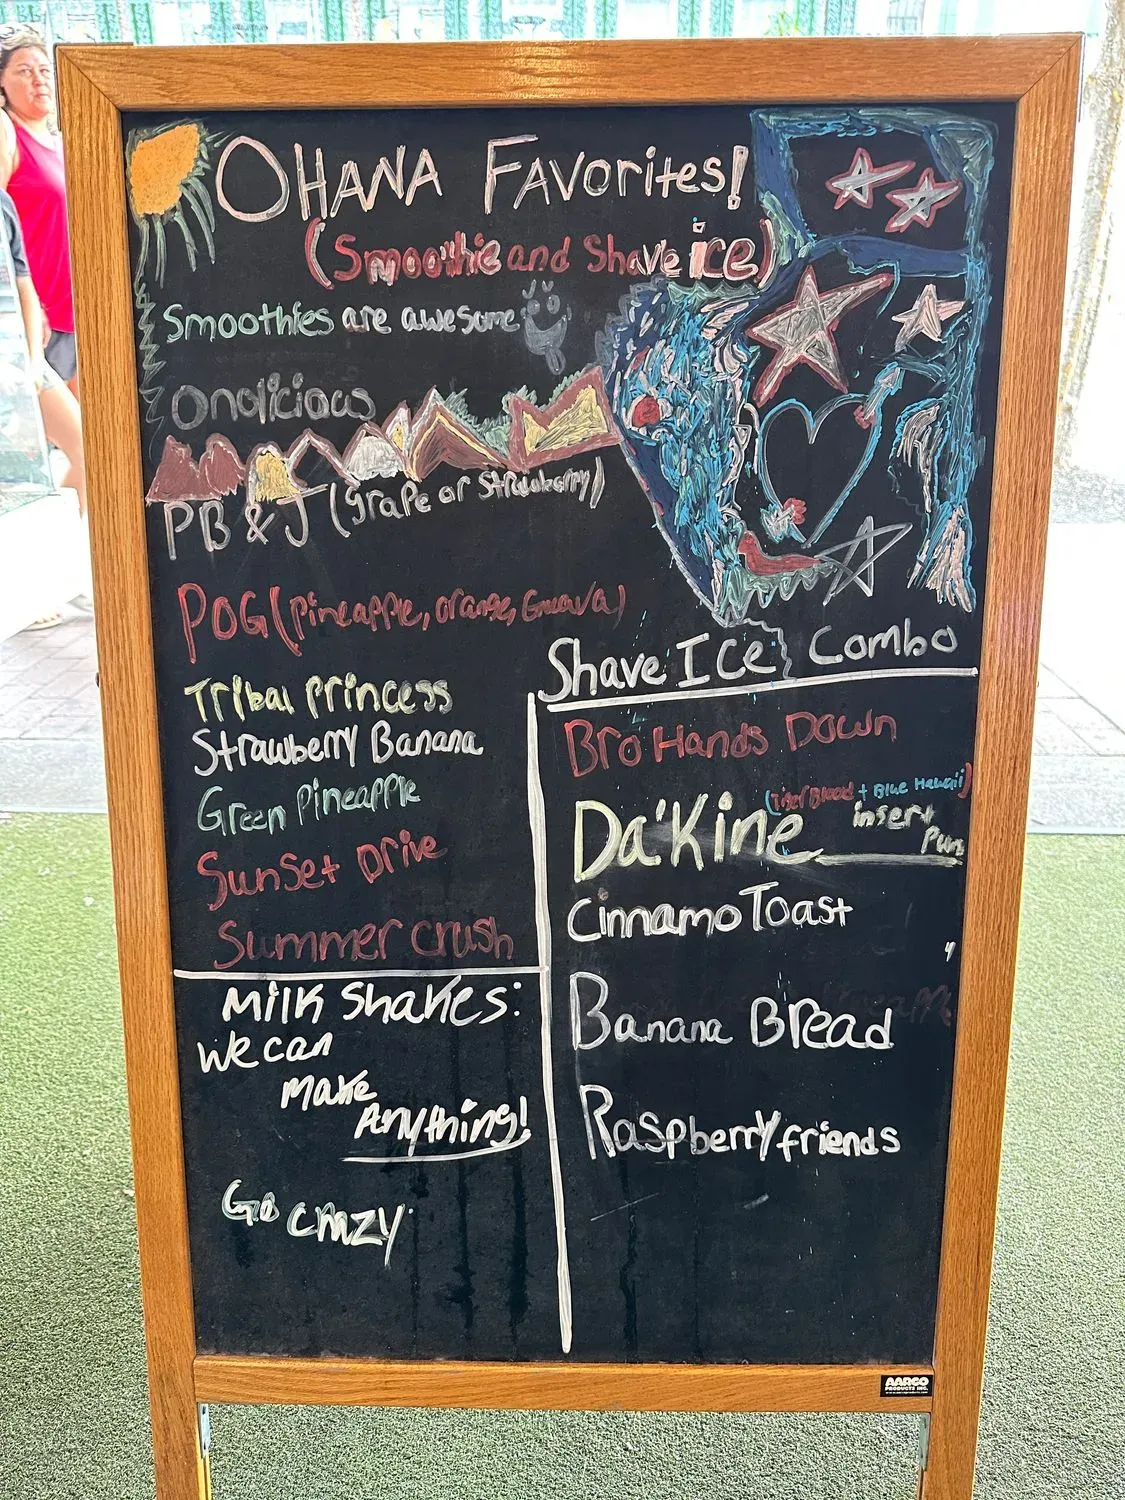 OHANA FAVorites!
(Smoothie and Shave ice)
Smoothies are awesome
Onolicious
PB & J (Grape or Strawberry)
POG (pineapple, orange, Guava)
Tribal princess
Strawberry Banana
Green Pineapple
Sunset Drive
Summer crush
Milk Shakes:
We can
Make
Anything!
Go crazy
Shave Ice Combo
Bro Hands Down
(Tiger Blood + Blue Hawaii)
Da'Kine
insert
Pun
Cinnamo Toast
Banana Bread
Raspberry friends
AARCO
PRODUCTS INC.